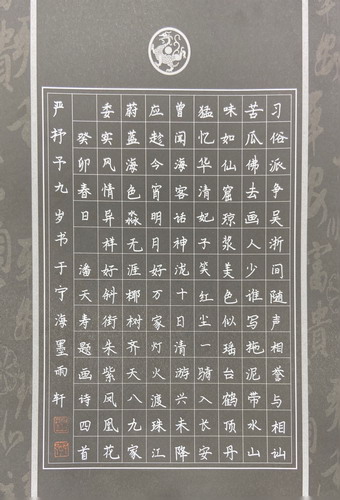 习俗派争吴浙间随声相誉与相讪
苦瓜佛去画人少谁写拖泥带水山
味如仙窟琼浆美色似瑶台鹤顶丹
猛忆华清妃子笑红尘一骑入长安
曾闻海客话神泷十日清游兴未降
应趁今宵明月好万家灯火渡珠江
蔚蓝海色淼无涯椰树齐天八九家
委实风情异样好斜街朱紫凤凰花
癸卯春日 潘天寿题画诗四首
严抒予九岁书于宁海墨雨轩